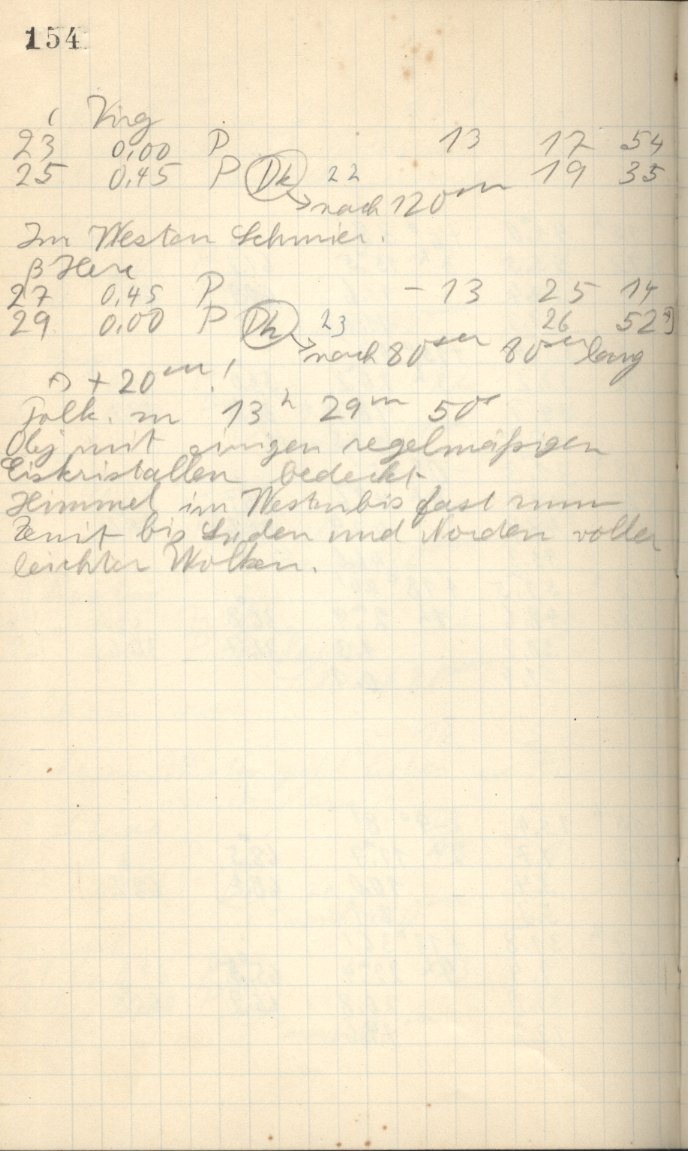 154
Virg
23 0,00 P 13 17 54
25 0,45 P Dk 22 19 35
nach 120 sec
Im Westen Schmier.
β Herc
27 0,45 P - 13 25 14
29 0,00 P Dk 23 26 52
nach 80 sec 80 sec lang
+ 20 !
Folk. in 13 h 29 m 50 s
Obj mit einigen regelmäßigen
Eiskristallen bedeckt
Himmel im Westen bis fast zum
Zenit bis Süden und Norden voller
leichter Wolken.